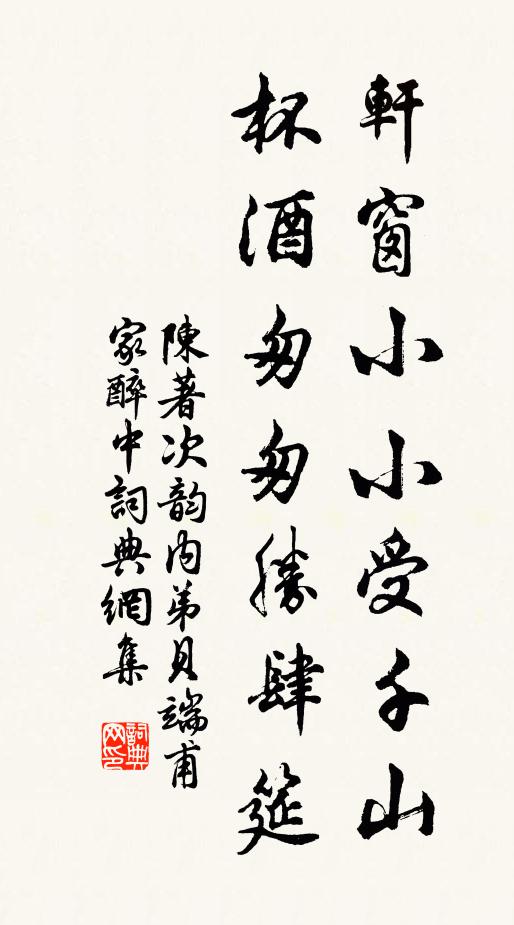 軒窗小小受千山
杯酒匆匆勝肆筵
陳著次韵内弟貝端甫
家醉中詞典網集
詞典
网印